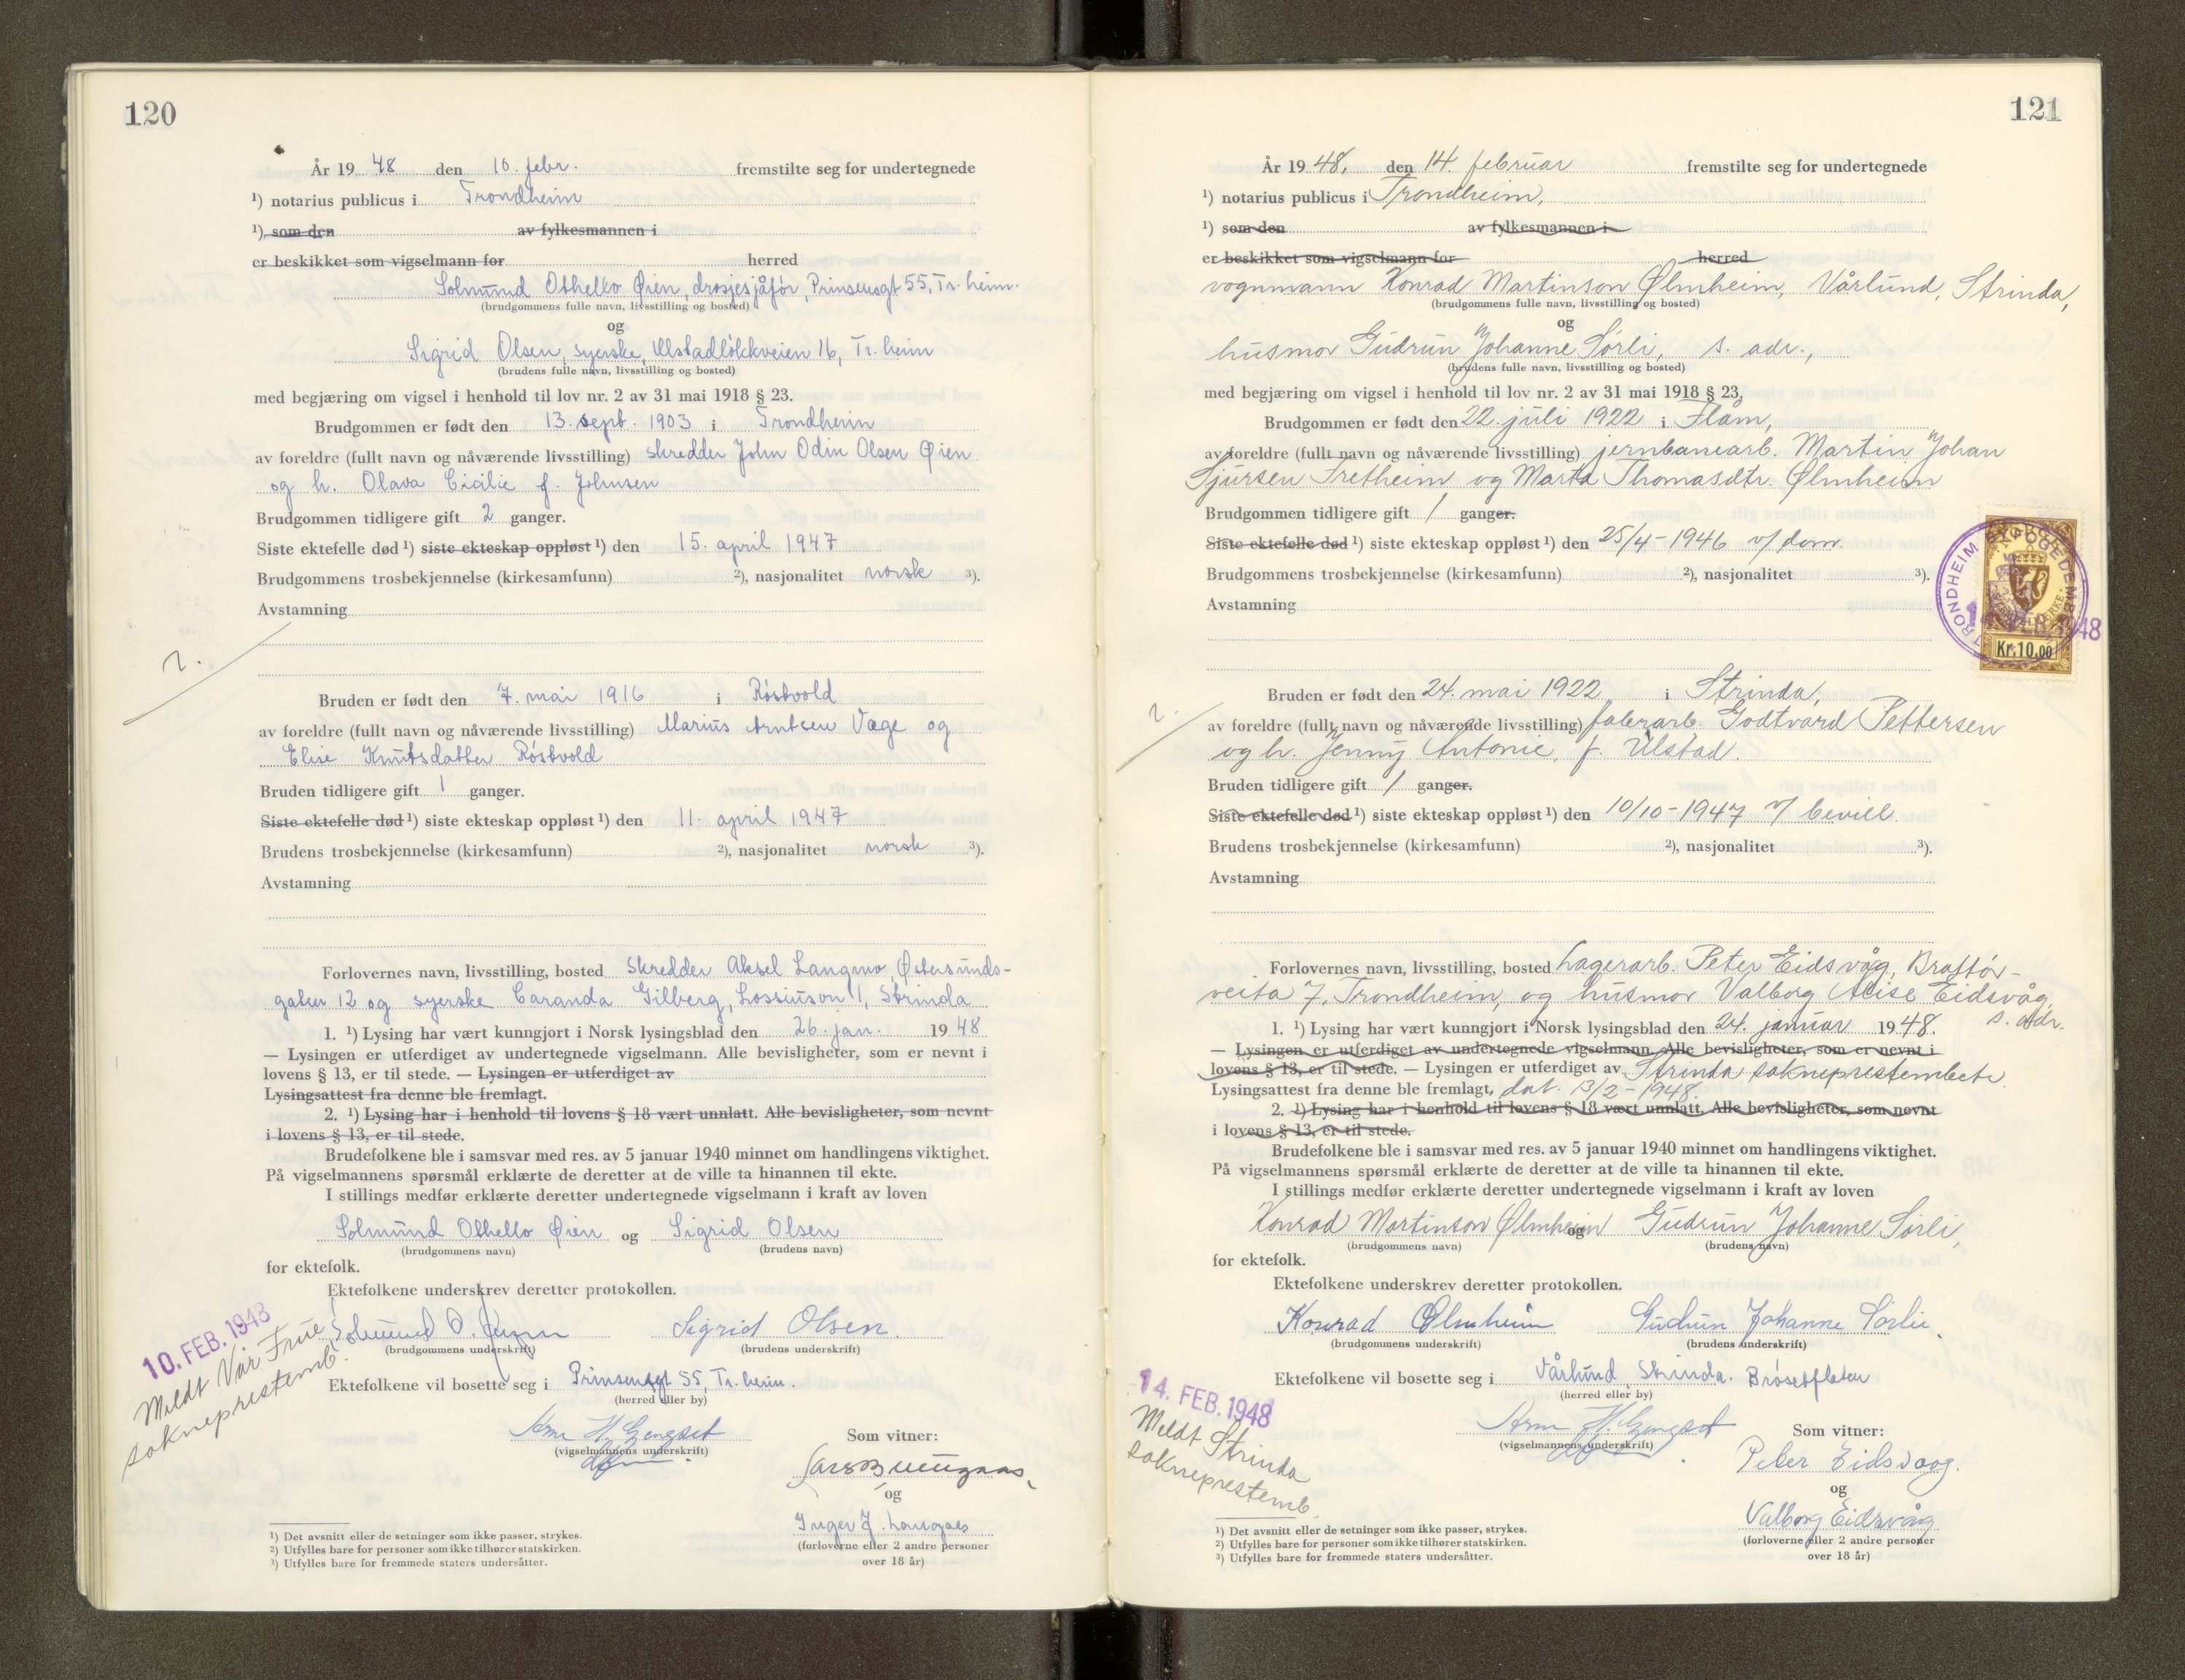 120
År 1948 den 10. febr. fremstilte seg for undertegnede
¹) notarius publicus i Trondheim
¹) som den av fylkesmannen i
er beskikket som vigselmann for herred
Solmund Othello Øien, drosjesjåfør, Prinsensgt 55, Tr.heim.
(brudgommens fulle navn, livsstilling og bosted)
og
Sigrid Olsen, syerske, Ulstadløkkveien 16, Tr.heim
(brudens fulle navn, livsstilling og bosted)
med begjæring om vigsel i henhold til lov nr. 2 av 31 mai 1918 § 23.
Brudgommen er født den 13. sept. 1903 i Trondheim
av foreldre (fullt navn og nåværende livsstilling) skredder John Odin Olsen Øien
og h. Olava Cicilie f. Johnsen
Brudgommen tidligere gift 2 ganger.
Siste ektefelle død ¹) siste ekteskap oppløst ¹) den 15. april 1947
Brudgommens trosbekjennelse (kirkesamfunn) ²), nasjonalitet norsk ³).
Avstamning
Bruden er født den 7. mai 1916 i Røstvold
av foreldre (fullt navn og nåværende livsstilling) Marius Arntsen Væge og
Elise Knutsdatter Røstvold
Bruden tidligere gift 1 ganger.
Siste ektefelle død ¹) siste ekteskap oppløst ¹) den 11. april 1947
Brudens trosbekjennelse (kirkesamfunn) ²), nasjonalitet norsk ³).
Avstamning
Forlovernes navn, livsstilling, bosted skredder Aksel Langmo, Østersunds-
gaten 12 og syerske Caranda Gilberg, Lossiusvn 1, Strinda
1. ¹) Lysing har vært kunngjort i Norsk lysingsblad den 26. jan. 1948
— Lysingen er utferdiget av undertegnede vigselmann. Alle bevisligheter, som er nevnt i
lovens § 13, er til stede. — Lysingen er utferdiget av
Lysingsattest fra denne ble fremlagt.
2. ¹) Lysing har i henhold til lovens § 18 vært unnlatt. Alle bevisligheter, som nevnt
i lovens § 13, er til stede.
Brudefolkene ble i samsvar med res. av 5 januar 1940 minnet om handlingens viktighet.
På vigselmannens spørsmål erklærte de deretter at de ville ta hinannen til ekte.
I stillings medfør erklærte deretter undertegnede vigselmann i kraft av loven
Solmund Othello Øien og Sigrid Olsen
(brudgommens navn) (brudens navn)
for ektefolk.
Ektefolkene underskrev deretter protokollen.
10. FEB. 1948
Meldt Vår Frue
sokneprestemb.
Solmund O. Sigrid Olsen.
(brudgommens underskrift) (brudens underskrift)
Ektefolkene vil bosette seg i Prinsensgt 55, Tr.heim.
(herred eller by)
(vigselmannens underskrift)
Som vitner:
og
Inger J.
(forloverne eller 2 andre personer
over 18 år)
¹) Det avsnitt eller de setninger som ikke passer, strykes.
²) Utfylles bare for personer som ikke tilhører statskirken.
³) Utfylles bare for fremmede staters undersåtter.
121
År 1948, den 14. februar fremstilte seg for undertegnede
¹) notarius publicus i Trondheim,
¹) som den av fylkesmannen i
er beskikket som vigselmann for herred
vognmann Konrad Martinson Ølmheim, Vårlund, Strinda,
(brudgommens fulle navn, livsstilling og bosted)
og
husmor Gudrun Johanne Sørli, s. adr.,
(brudens fulle navn, livsstilling og bosted)
med begjæring om vigsel i henhold til lov nr. 2 av 31 mai 1918 § 23.
Brudgommen er født den 22. juli 1922 i Flåm,
av foreldre (fullt navn og nåværende livsstilling) jernbanearb. Martin Johan
Sjursen Fretheim og Marta Thomasdtr. Ølmheim
Brudgommen tidligere gift 1 ganger.
Siste ektefelle død ¹) siste ekteskap oppløst ¹) den 25/4-1946 v/ dom.
Brudgommens trosbekjennelse (kirkesamfunn) ²), nasjonalitet ³).
TRONDHEIM BYFOGEDEMBEDE
1948
Kr. 10.00
Avstamning
Bruden er født den 24. mai 1922 i Strinda,
av foreldre (fullt navn og nåværende livsstilling) fabrarb. Godtvard Pettersen
og h. Jenny Antonie, f. Ulstad.
Bruden tidligere gift 1 ganger.
Siste ektefelle død ¹) siste ekteskap oppløst ¹) den 10/10-1947 v/ bevill.
Brudens trosbekjennelse (kirkesamfunn) ²), nasjonalitet ³).
Avstamning
Forlovernes navn, livsstilling, bosted Lagerarb. Peter Eidsvåg, Brattør-
veita 7, Trondheim, og husmor Valborg Alise Eidsvåg,
s. adr.
1. ¹) Lysing har vært kunngjort i Norsk lysingsblad den 24. januar 1948.
— Lysingen er utferdiget av undertegnede vigselmann. Alle bevisligheter, som er nevnt i
lovens § 13, er til stede. — Lysingen er utferdiget av Strinda sokneprestembete
Lysingsattest fra denne ble fremlagt, dat. 13/2-1948.
2. ¹) Lysing har i henhold til lovens § 18 vært unnlatt. Alle bevisligheter, som nevnt
i lovens § 13, er til stede.
Brudefolkene ble i samsvar med res. av 5 januar 1940 minnet om handlingens viktighet.
På vigselmannens spørsmål erklærte de deretter at de ville ta hinannen til ekte.
I stillings medfør erklærte deretter undertegnede vigselmann i kraft av loven
Konrad Martinson Ølmheim og Gudrun Johanne Sørli,
(brudgommens navn) (brudens navn)
for ektefolk.
Ektefolkene underskrev deretter protokollen.
Konrad Ølmheim Gudrun Johanne Sørli.
(brudgommens underskrift) (brudens underskrift)
Ektefolkene vil bosette seg i Vårlund, Strinda. Brøsetflaten
(herred eller by)
14. FEB. 1948
Meldt Strinda
sokneprestemb.
(vigselmannens underskrift)
Som vitner:
Peter Eidsvaag.
og
Valborg Eidsvåg
(forloverne eller 2 andre personer
over 18 år)
¹) Det avsnitt eller de setninger som ikke passer, strykes.
²) Utfylles bare for personer som ikke tilhører statskirken.
³) Utfylles bare for fremmede staters undersåtter.